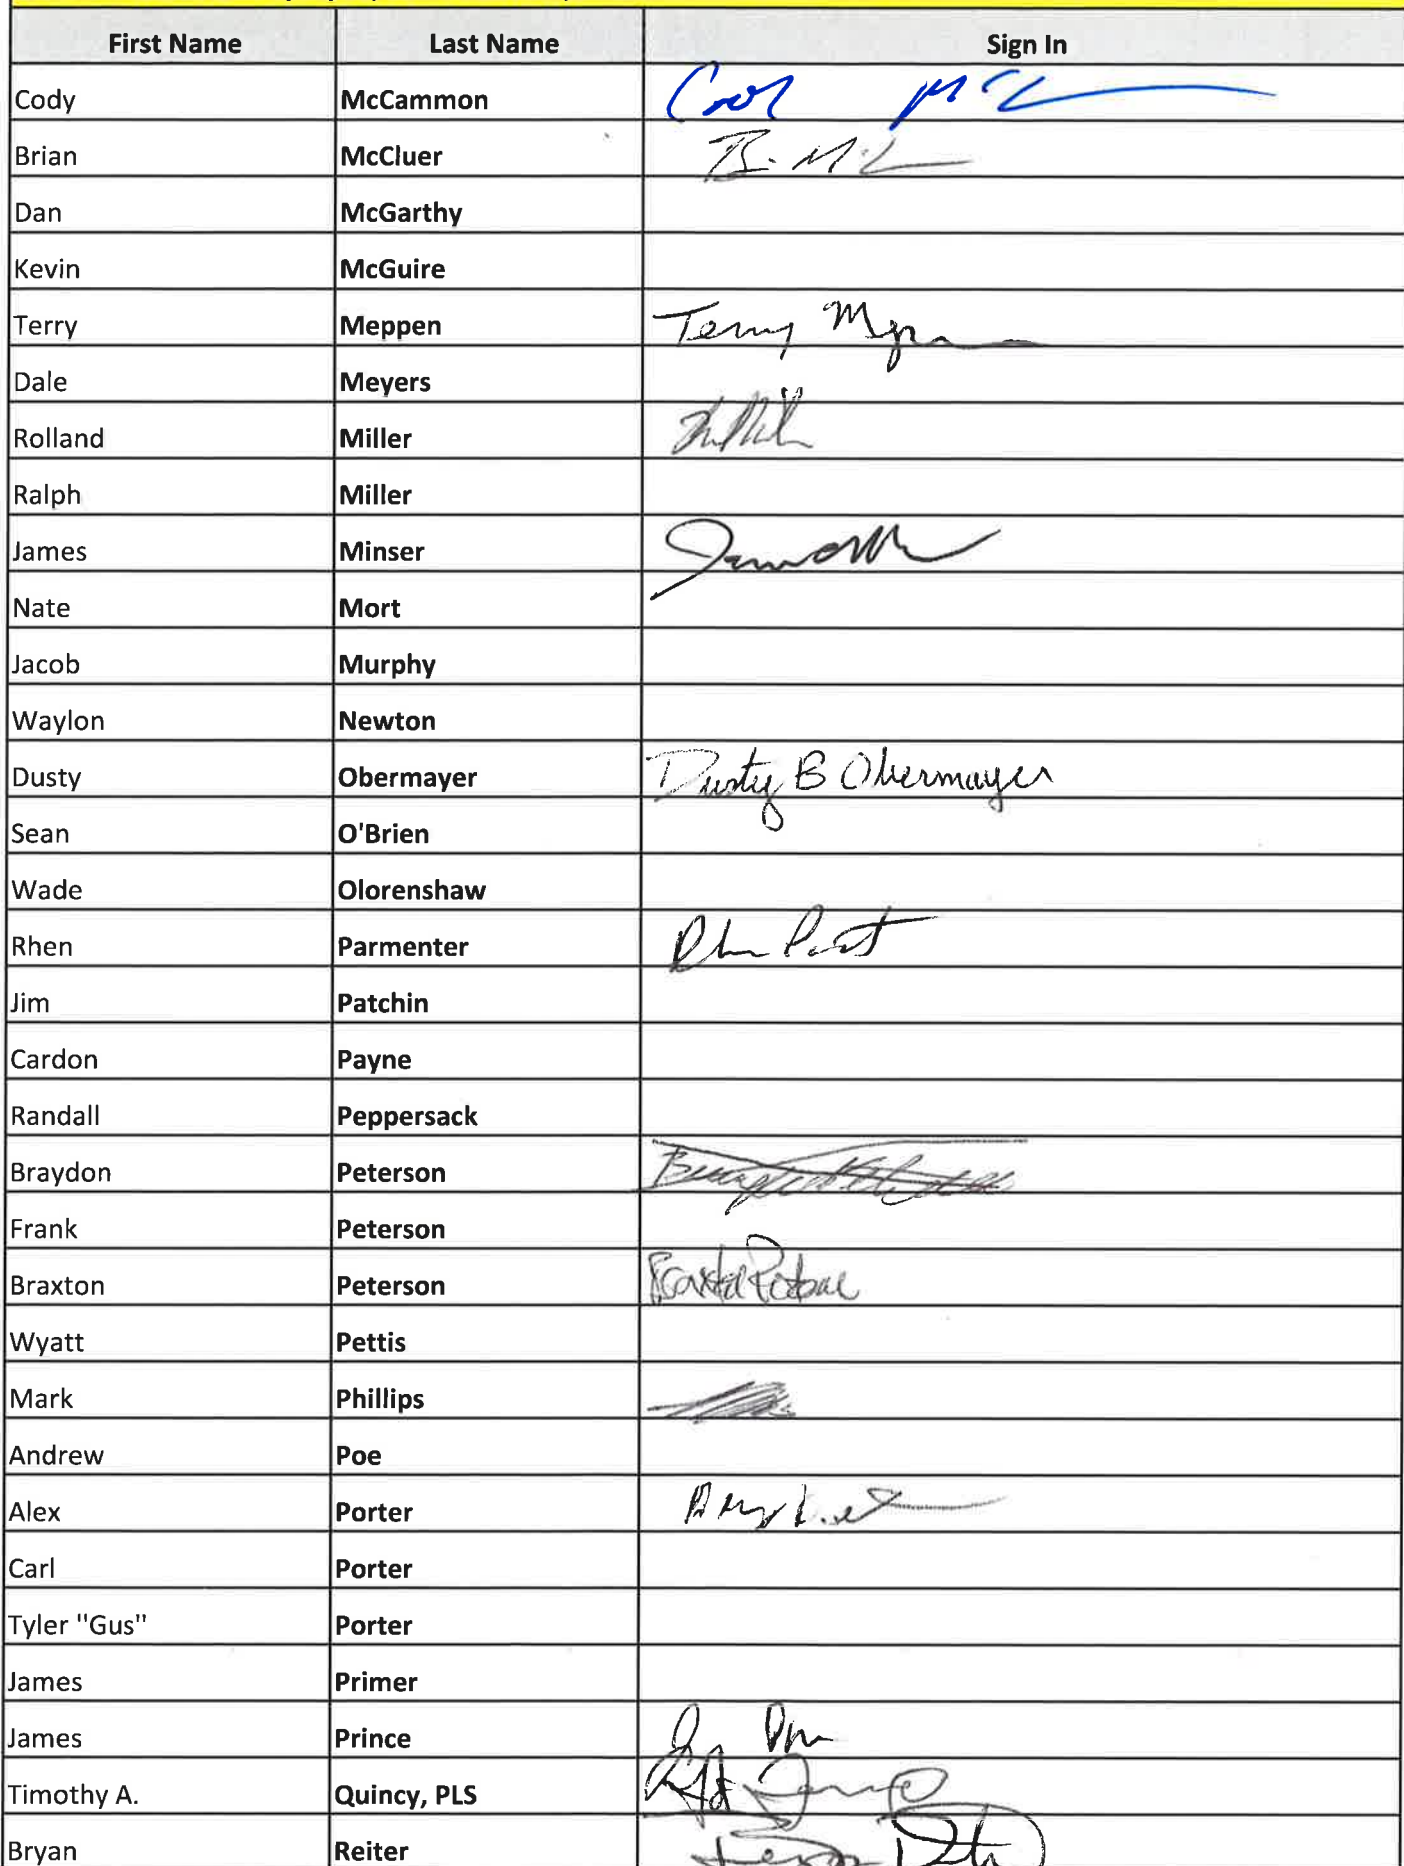 First Name Last Name Sign In
Cody McCammon
Brian McCluer
Dan McGarthy
Kevin McGuire
Terry Meppen Terry
Dale Meyers
Rolland Miller
Ralph Miller
James Minser
Nate Mort
Jacob Murphy
Waylon Newton
Dusty Obermayer Dusty B Obermayer
Sean O'Brien
Wade Olorenshaw
Rhen Parmenter
Jim Patchin
Cardon Payne
Randall Peppersack
Braydon Peterson
Frank Peterson
Braxton Peterson
Wyatt Pettis
Mark Phillips
Andrew Poe
Alex Porter
Carl Porter
Tyler "Gus" Porter
James Primer
James Prince
Timothy A. Quincy, PLS
Bryan Reiter